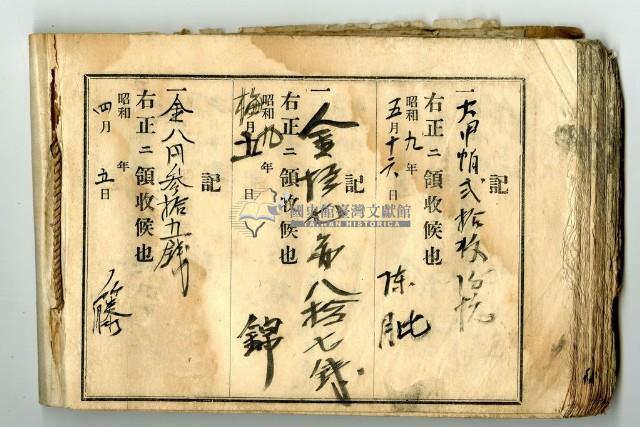 記
一大甲帕弍拾枚
右正ニ領收候也
昭和九年
五月十六日
陳
記
一金八拾七錢
右正ニ領收候也
昭和九年
月五日
錦
記
一金八円参拾九錢
右正ニ領收候也
昭和年
四月五日
藤
國史館臺灣文獻館
TAIWAN HISTORICA